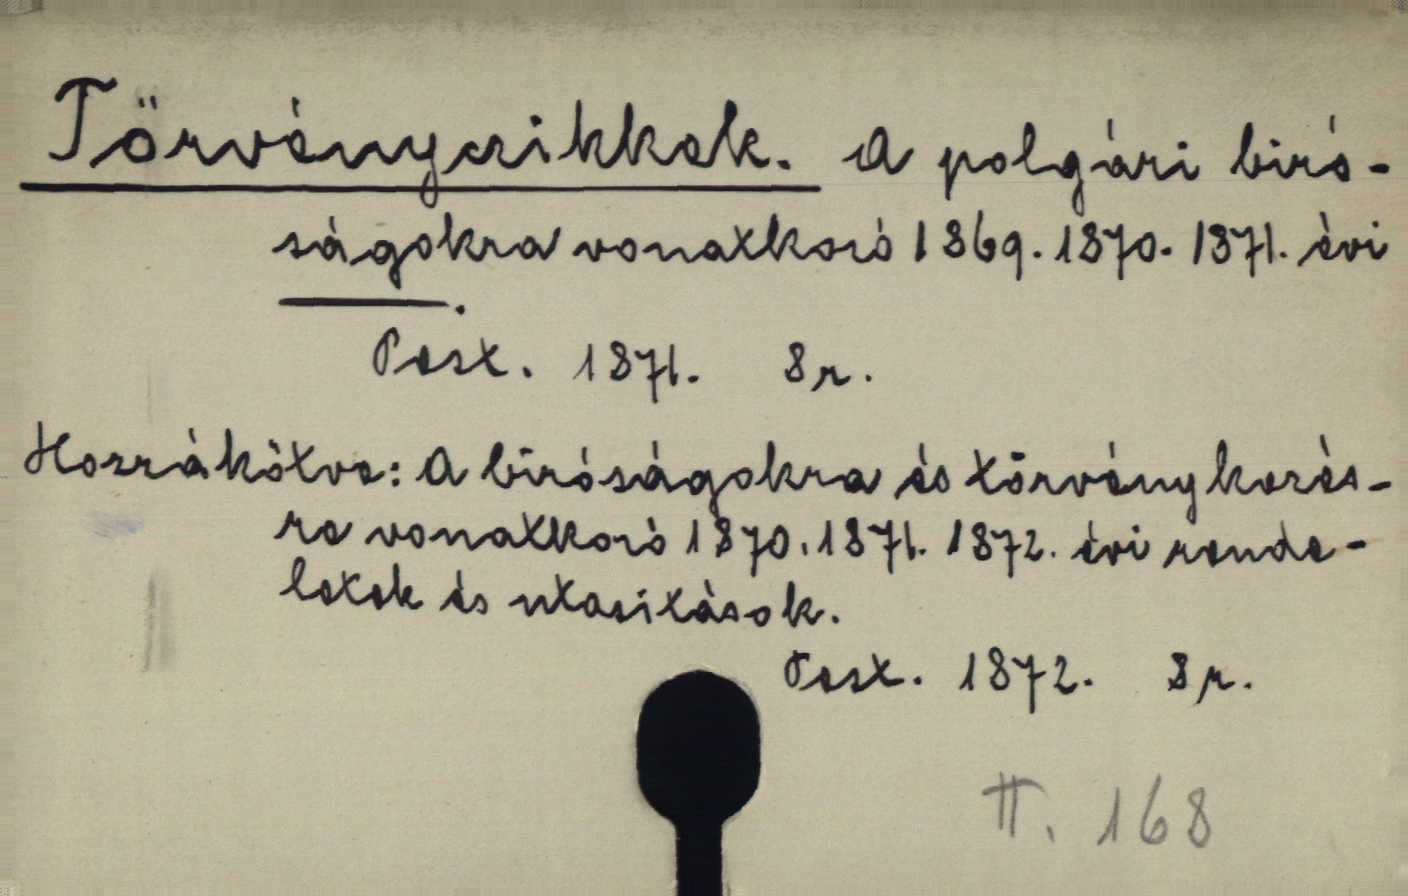 Törvénycikkek. A polgári biró-
ságokra vonatkozó 1869. 1870. 1871. évi
———.
Pest. 1871. 8r.
Hozzákötve: A bíróságokra és törvénykezés-
re vonatkozó 1870. 1871. 1872. évi rende-
letek és utasitások.
Pest. 1872. 8r.
II. 168